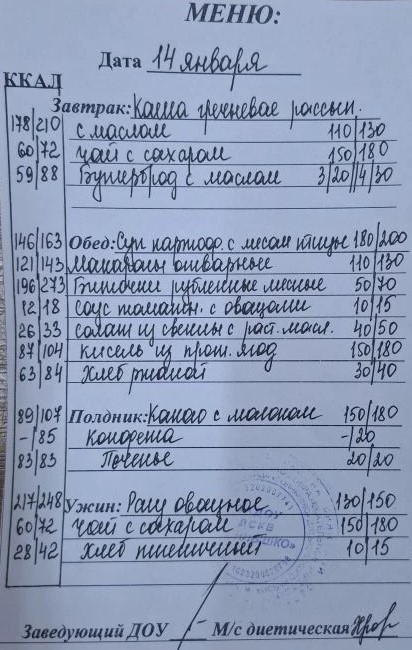 МЕНЮ:
Дата 14 января
ККАЛ
Завтрак: Каша гречневая рассып.
178|210 с маслом 110|130
60|72 Чай с сахаром 150|180
59|88 Бутерброд с маслом 3/20||4/30
146|163 Обед: Суп картоф. с мясом птицы 180|200
121|143 Макароны отварные 110|130
196|273 Биточки рубленные мясные 50|70
12|18 Соус томатн. с овощами 10|15
26|33 салат из свеклы с раст. масл. 40|50
87|104 кисель из прот. ягод 150|180
63|84 Хлеб ржаной 30|40
89|107 Полдник: Какао с молоком 150|180
-|85 Конфета -|20
83|83 Печенье 20|20
217|248 Ужин: Рагу овощное 130|150
60|72 Чай с сахаром 150|180
28|42 Хлеб пшеничный 10|15
Заведующий ДОУ М/с диетическая